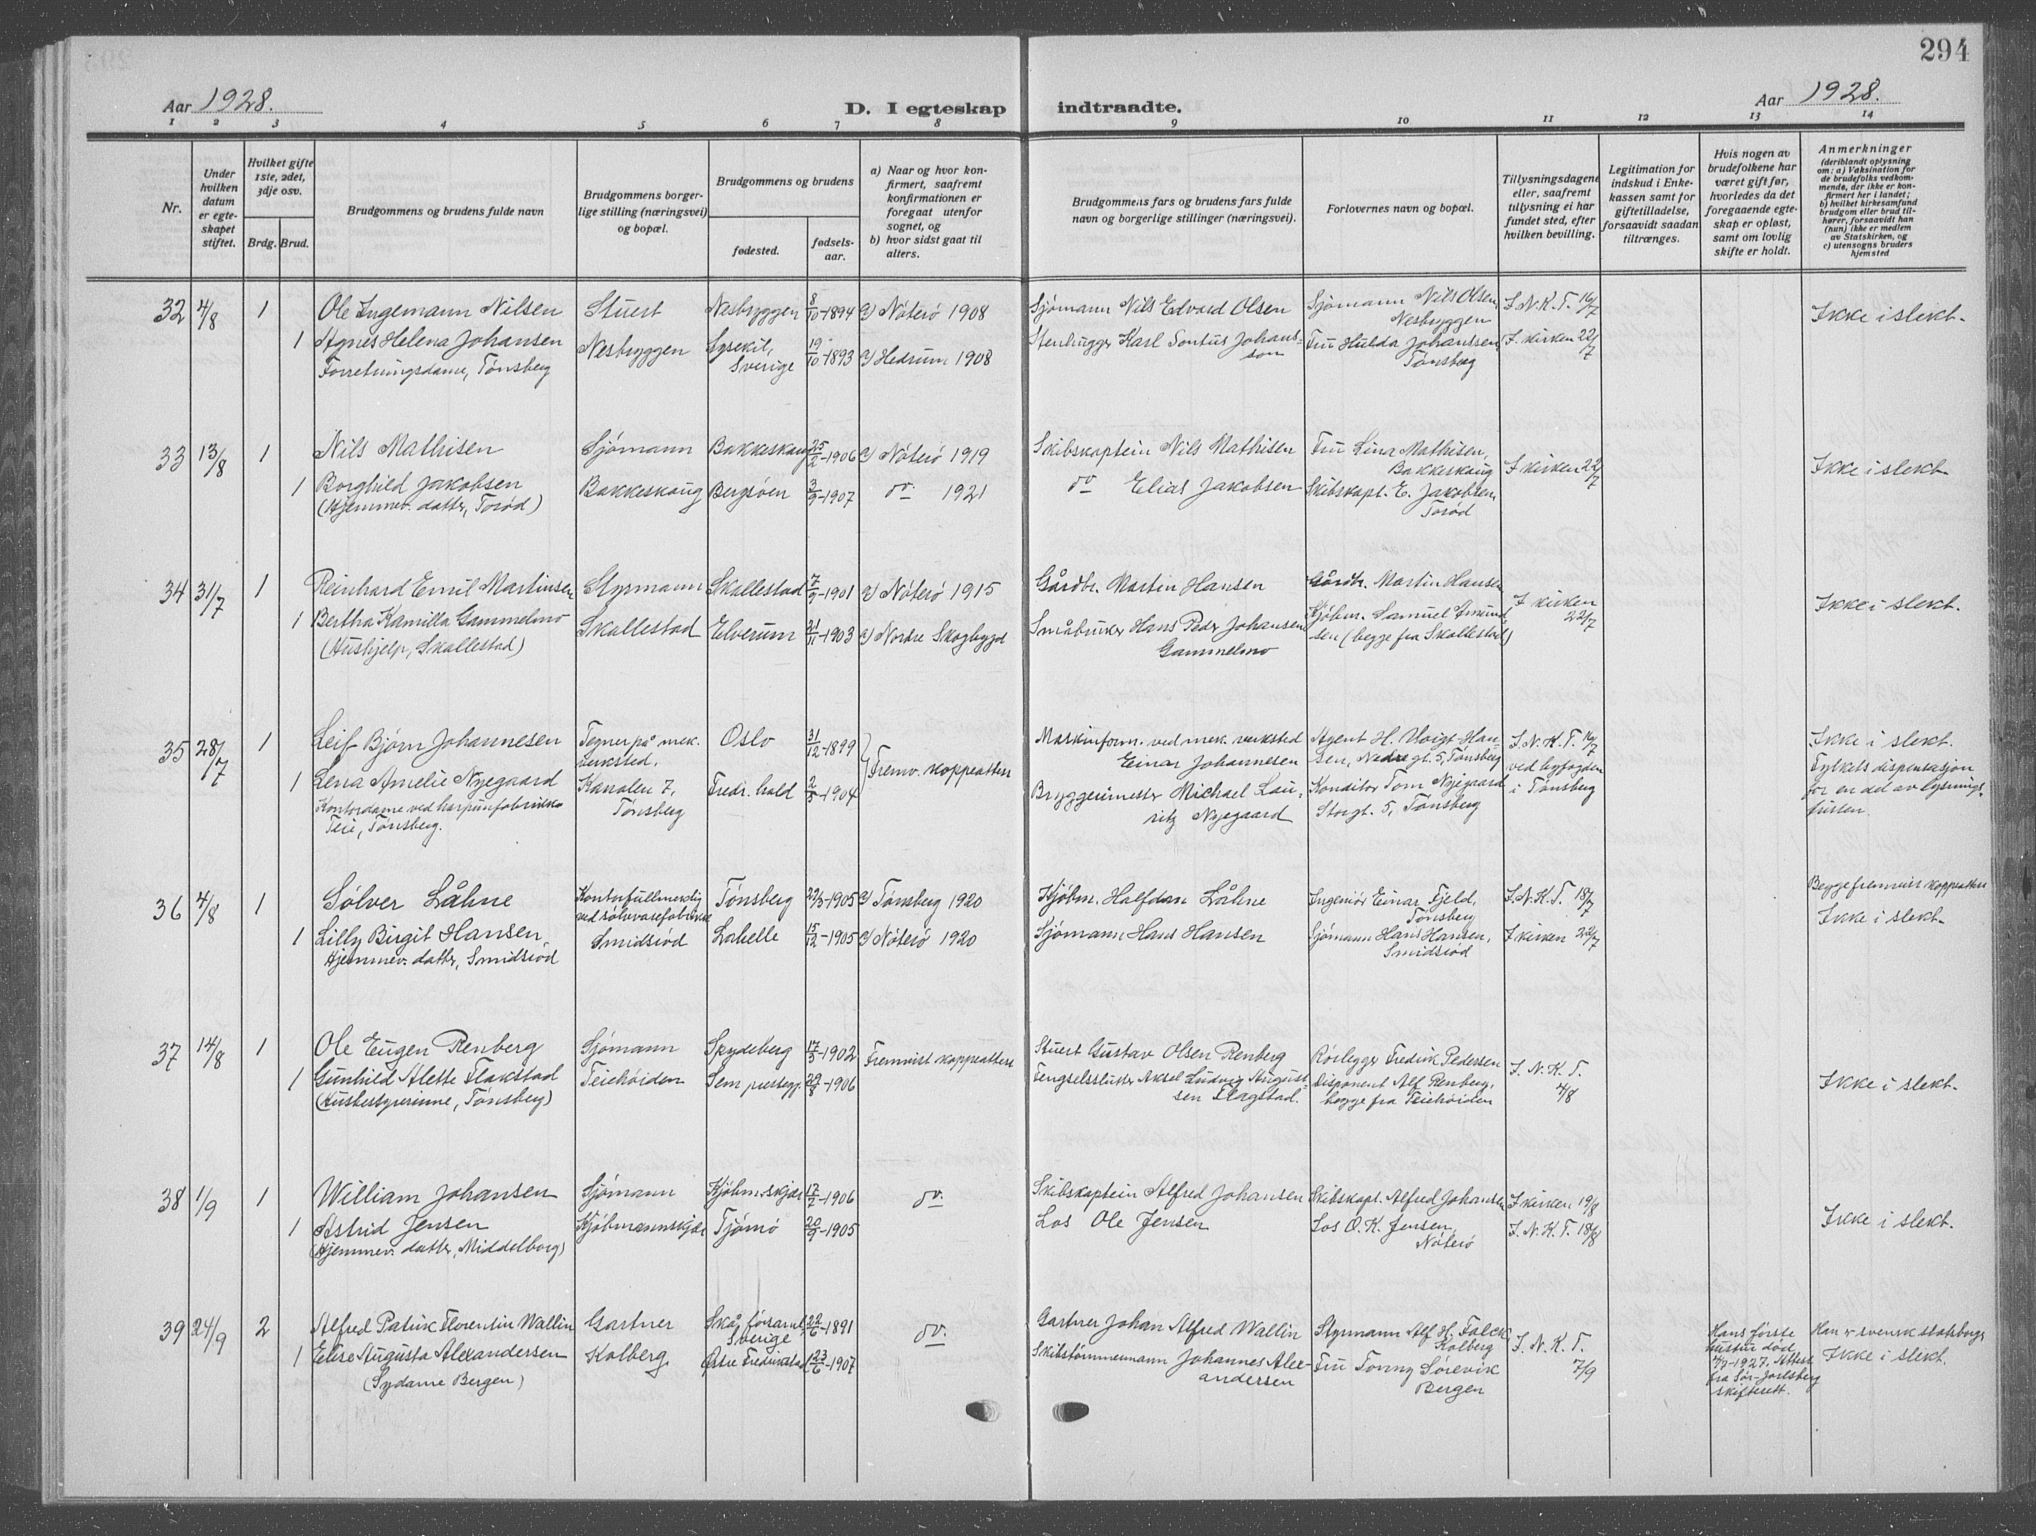 294
Aar 1928.
D. I egteskap indtraadte.
Aar 1928.
1 2 3 4 5 6 7 8 9 10 11 12 13 14
Nr.
Under hvilken datum er egteskapet stiftet.
Hvilket gifte 1ste, 2det, 3dje osv.
Brdg. Brud.
Brudgommens og brudens fulde navn
Brudgommens borgerlige stilling (næringsvei) og bopæl.
Brudgommens og brudens
fødested.
fødselsaar.
a) Naar og hvor konfirmert, saafremt konfirmationen er foregaat utenfor sognet, og
b) hvor sidst gaat til alters.
Brudgommens fars og brudens fars fulde navn og borgerlige stillinger (næringsvei).
Forlovernes navn og bopæl.
Tillysningsdagene eller, saafremt tillysning ei har fundet sted, efter hvilken bevilling.
Legitimation for indskud i Enkekassen samt for giftetilladelse, forsaavidt saadan tiltrænges.
Hvis nogen av brudefolkene har været gift før, hvorledes da det foregaaende egteskap er opløst, samt om lovlig skifte er holdt.
Anmerkninger
(deriblandt oplysning om: a) Vaksination for de brudefolks vedkommende, der ikke er konfirmert her i landet; b) hvilket kirkesamfund brudgom eller brud tilhører, forsaavidt han (hun) ikke er medlem av Statskirken, og c) utensogns bruders hjemsted
32 4/8 1 Ole Ingemann Nilsen Stuert Nesbryggen 8/10-1894 a) Nøterø 1908 Sjømann Nils Edvard Olsen Sjømann Nils Olsen, Nesbryggen I. N. K. T. 16/7 Ikke i slekt.
1 Agnes Helena Johansen Nesbryggen Lysekil, Sverige 19/10-1893 a) Hedrum 1908 Stenhugger Karl Pontus Johansson Fru Hulda Johanssen, Tønsberg I kirken 22/7
Forretningsdame, Tønsberg
33 13/8 1 Nils Mathisen Sjømann Bakkeskaug 25/2-1906 a) Nøterø 1919 Skibskaptein Nils Mathisen Fru Lina Mathisen, Bakkeskaug I kirken 22/7 Ikke i slekt
1 Borghild Jakobsen Bakkeskaug Bergsøen 3/9-1907 do. 1921 do Elias Jakobsen Skibskapt. E. Jakobsen, Torød
(Hjemmev. datter, Torød)
34 31/7 1 Reinhard Emil Martinsen Styrmann Skallestad 7/9-1901 a) Nøterø 1915 Gårdbr. Martin Hansen Gårdbr. Martin Hansen I kirken 22/7 Ikke i slekt.
1 Bertha Kamilla Gammelmo Skallestad Elverum 21/11-1903 a) Nordre Skogbygd Småbruker Hans Peder Johansen Gammelmo Kjøbm. Samuel Amundsen (begge fra Skallestad)
(Hushjelp, Skallestad)
35 28/7 1 Leif Bjørn Johannesen Tegner på mek. verksted, Oslo 31/12-1899 Fremv. koppeattest Maskinform. ved mek. verksted Einar Johannesen Agent H. Voigt-Hansen, Nedre gt. 5, Tønsberg I. N. K. T. 16/7 Ikke i slekt.
1 Lena Amelie Nyegaard Kanalen 7, Tønsberg Fredr.hald 2/5-1904 Bryggerimester Michael Lauritz Nyegaard Konditor Tom Nyegaard Storgt. 5, Tønsberg ved byfogden i Tønsberg Fylkets dispensasjon for en del av lysningsfristen.
Kontordame ved harpunfabrikken Teie, Tønsberg.
36 4/8 1 Sølver Låhne Kontorfullmektig ved sølvvarefabrikk Tønsberg 22/3-1905 a) Tønsberg 1920 Kjøbm. Halfdan Låhne Ingeniør Einar Fjeld, Tønsberg I. N. K. T. 18/7 Begge fremvist koppeattest
1 Lilly Birgit Hansen, Smidsrød Labelle 15/12-1905 a) Nøterø 1920 Sjømann Hans Hansen Sjømann Hans Hansen, Smidsrød I kirken 22/7 Ikke i slekt.
Hjemmev. datter, Smidsrød
37 14/8 1 Ole Eugen Renberg Sjømann Spydeberg 17/5-1902 Fremvist koppeattest Stuert Gustav Olsen Renberg Rørlegger Fredrik Pedersen I. N. K. T. 4/8
1 Gunhild Alette Flakstad Teiehøiden Sem prestegj. 29/8-1906 Fengselsslutter Aksel Ludvig Augustsen Flagstad. Disponent Alf Renberg, begge fra Teiehøiden Ikke i slekt.
(Husbestyrerinne, Tønsberg)
38 1/9 1 William Johansen Sjømann Kjøbm.skjær 17/7-1906 do. Skibskaptein Alfred Johansen Skibskapt. Alfred Johansen I kirken 19/8
1 Astrid Jensen Kjøbmannskjær Tjømø 20/9-1905 Los Ole Jensen Los O. K. Jensen, Nøterø I. N. K. T. 18/8 Ikke i slekt.
(Hjemmev. datter, Middelborg)
39 24/9 2 Alfred Patrik Florentin Wallin Gartner Skå, Sverige 22/6-1891 do. Gartner Johan Alfred Wallin Styrmann Alf H. Falck Kolberg I. N. K. T. 7/9 Hans første hustru død 4/7-1927. Attest fra Sør-Jarlsberg skifterett. Han er svensk statsborger
1 Elise Augusta Alexandersen Kolberg Østre Fredrikstad 23/6-1907 Skibstømmermann Johannes Alexandersen Fru Tonny Sørevik Bergen Ikke i slekt.
(Sydame Bergen)